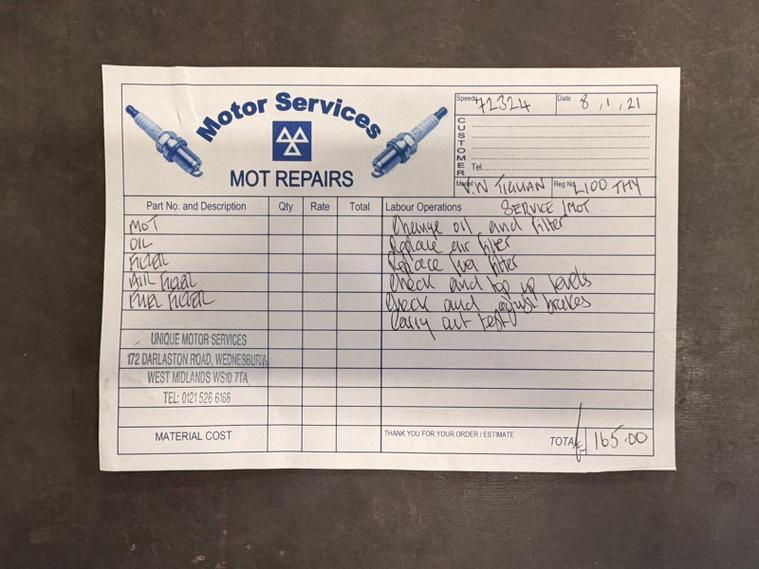 Motor Services
MOT REPAIRS
Speedo 72324 Date 8,1,21
CUSTOMER
Tel
Model V.W TIGUAN Reg No. L100 THY
Part No. and Description Qty Rate Total Labour Operations SERVICE/MOT
MOT Change oil and filter
OIL Replace air filter
FILTER Replace fuel filter
AIR FILTER Check and top up levels
FUEL FILTER Check and adjust brakes
Carry out test
UNIQUE MOTOR SERVICES
172 DARLASTON ROAD, WEDNESBURY,
WEST MIDLANDS WS10 7TA
TEL: 0121 526 6166
MATERIAL COST THANK YOU FOR YOUR ORDER / ESTIMATE TOTAL £ 165.00